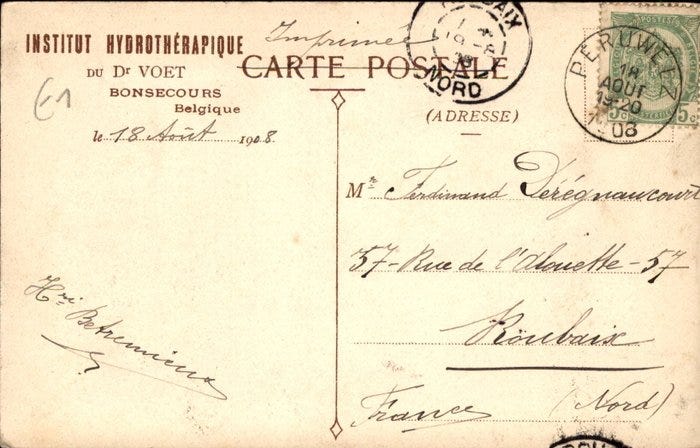 INSTITUT HYDROTHÉRAPIQUE
DU Dr VOET
BONSECOURS
Belgique
le 18 Août 1908.
Imprimé
CARTE POSTALE
(ADRESSE)
NORD
PERUWELZ
18
AOUT
19-20
08
POSTES
5c 5c
E1
Mr Ferdinand Dérégnaucourt
57-Rue de l'Alouette-57
Roubaix
France (Nord)
Hri Betremieux